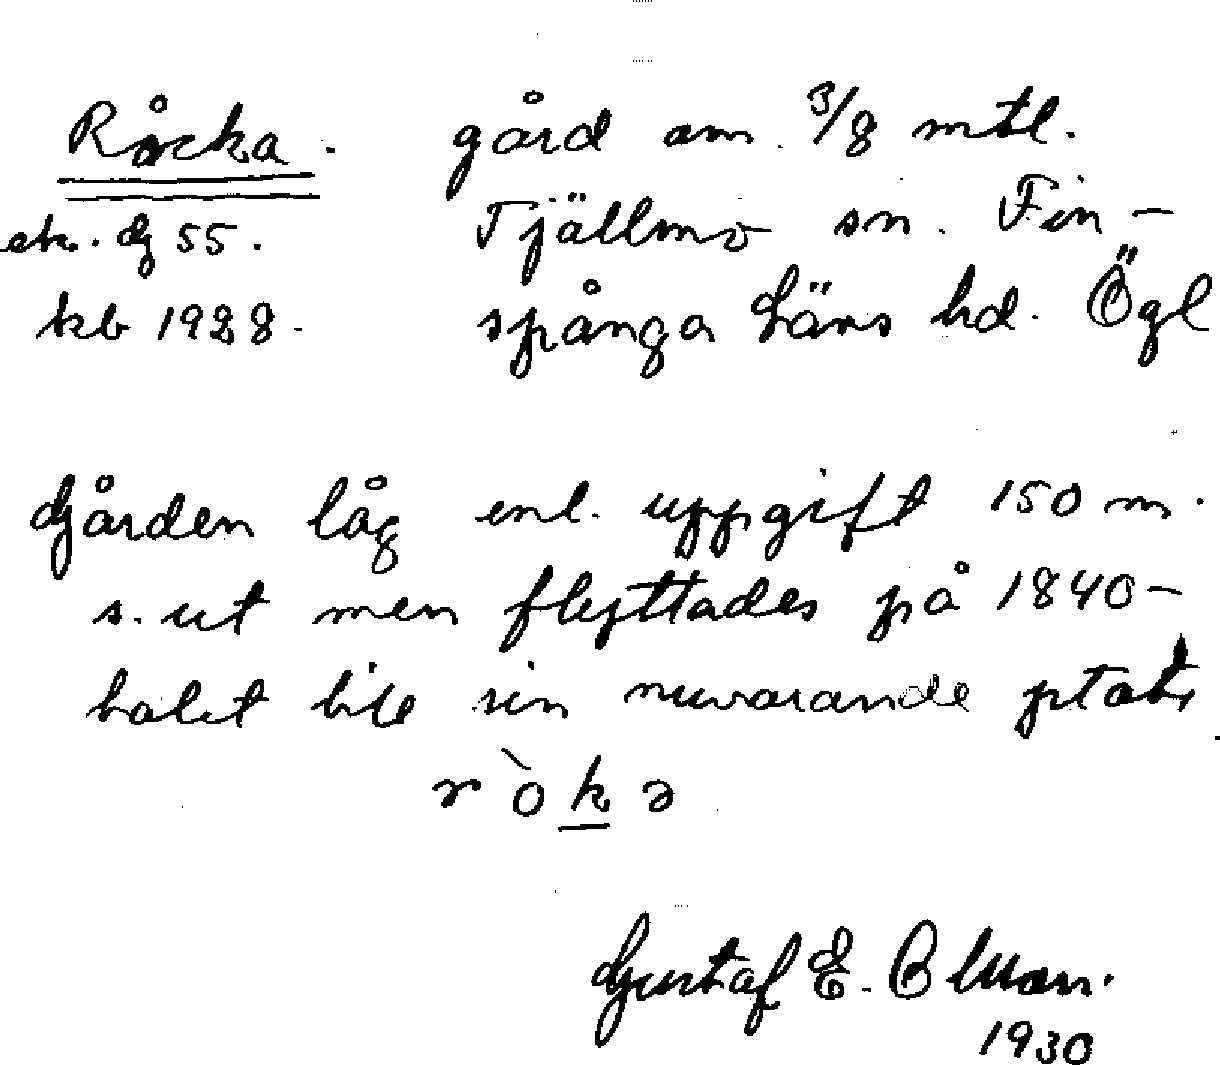 Råcka. gård om 3/8 mtl.
ek. bg 55. Tjällmo sn. Fin-
kb 1928. spånga Läns hd. Ögl
Gården låg enl. uppgift 150 m.
s. ut men flyttades på 1840-
talet till sin nuvarande plats
r ò k ə
Gustaf E. Blman.
1930